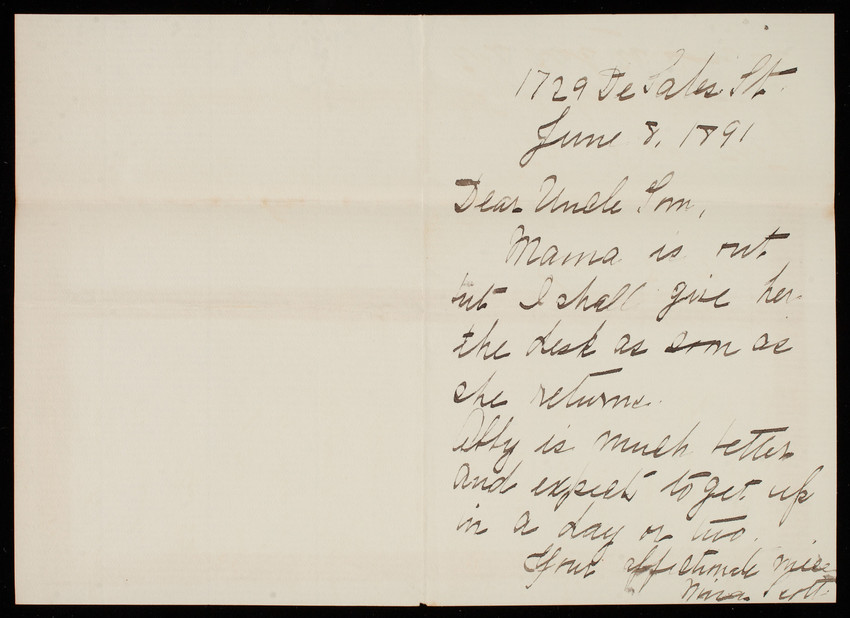 1729 De Sales St.
June 8, 1891
Dear Uncle Tom,
Mama is out
but I shall give her
the desk as soon as
she returns.
Abby is much better
and expects to get up
in a day or two.
Your affectionate niece
Scott